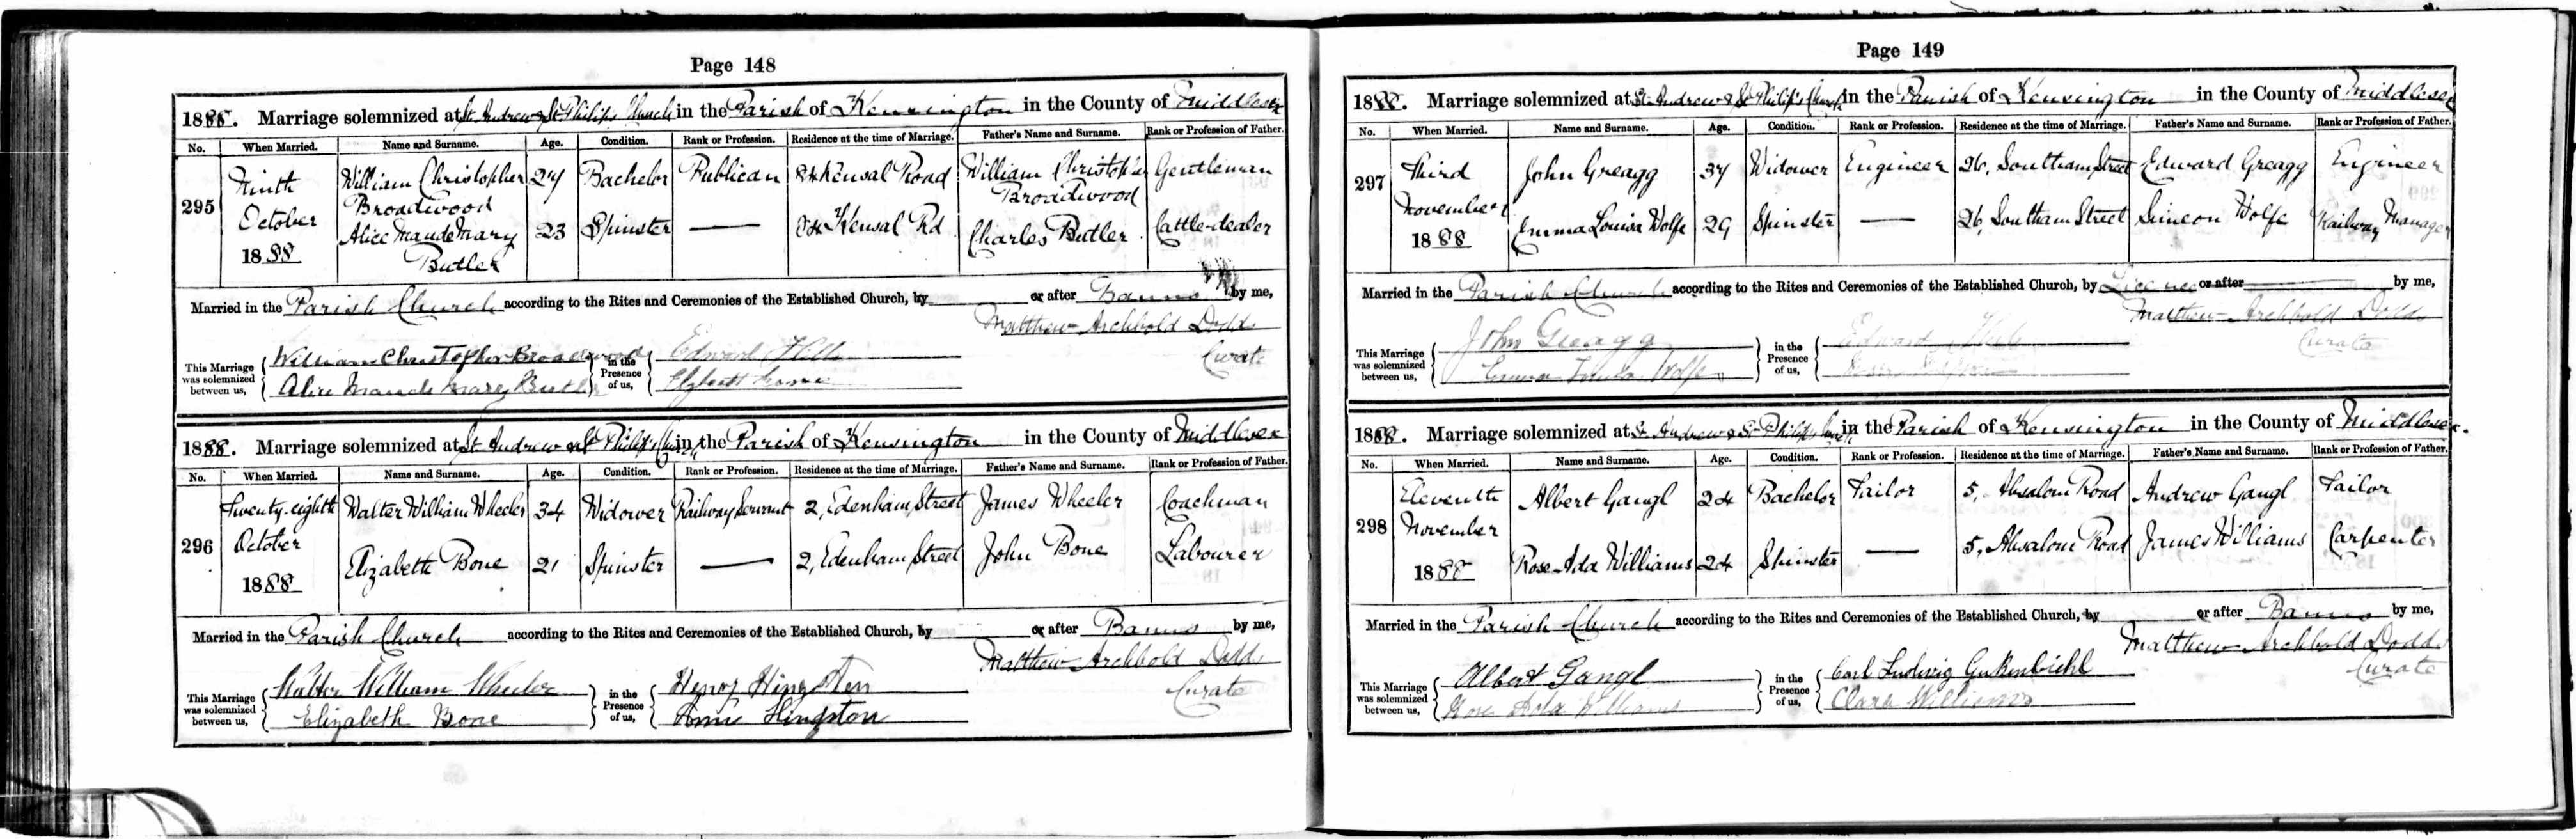 Page 148
1888. Marriage solemnized at St. Andrew & St Philips Church in the Parish of Kensington in the County of Middlesex
No. When Married. Name and Surname. Age. Condition. Rank or Profession. Residence at the time of Marriage. Father's Name and Surname. Rank or Profession of Father.
295 Ninth October 1888 William Christopher Broadwood 27 Bachelor Publican 84 Kensal Road William Christopher Broadwood Gentleman
Alice Maude Mary Butler 23 Spinster — 84 Kensal Rd Charles Butler Cattle-dealer
Married in the Parish Church according to the Rites and Ceremonies of the Established Church, by or after Banns by me,
Matthew Archbold Dodd
Curate
This Marriage was solemnized between us, William Christopher Broadwood in the Presence of us, Edward
Alice Maude Mary Butler
1888. Marriage solemnized at St. Andrew & St Philip's Church in the Parish of Kensington in the County of Middlesex
No. When Married. Name and Surname. Age. Condition. Rank or Profession. Residence at the time of Marriage. Father's Name and Surname. Rank or Profession of Father.
296 Twenty-eighth October 1888 Walter William Wheeler 34 Widower Railway Servant 2, Edenham Street James Wheeler Coachman
Elizabeth Bone 21 Spinster — 2, Edenham Street John Bone Labourer
Married in the Parish Church according to the Rites and Ceremonies of the Established Church, by or after Banns by me,
Matthew Archbold Dodd
Curate
This Marriage was solemnized between us, Walter William Wheeler in the Presence of us, Henry Hingston
Elizabeth Bone Annie Hingston
Page 149
1888. Marriage solemnized at St. Andrew & St Philip's Church in the Parish of Kensington in the County of Middlesex
No. When Married. Name and Surname. Age. Condition. Rank or Profession. Residence at the time of Marriage. Father's Name and Surname. Rank or Profession of Father.
297 Third November 1888 John Greagg 37 Widower Engineer 26, Southam Street Edward Greagg Engineer
Emma Louisa Wolfe 29 Spinster — 26, Southam Street Simeon Wolfe Railway Manager
Married in the Parish Church according to the Rites and Ceremonies of the Established Church, by Licence or after by me,
Matthew Archbold Dodd
Curate
This Marriage was solemnized between us, John Greagg in the Presence of us, Edward
Emma Louisa Wolfe
1888. Marriage solemnized at St. Andrew & St Philip's Church in the Parish of Kensington in the County of Middlesex.
No. When Married. Name and Surname. Age. Condition. Rank or Profession. Residence at the time of Marriage. Father's Name and Surname. Rank or Profession of Father.
298 Eleventh November 1888 Albert Gangl 24 Bachelor Tailor 5, Absalom Road Andrew Gangl Tailor
Rose Ada Williams 24 Spinster — 5, Absalom Road James Williams Carpenter
Married in the Parish Church according to the Rites and Ceremonies of the Established Church, by or after Banns by me,
Matthew Archbold Dodd
Curate
This Marriage was solemnized between us, Albert Gangl in the Presence of us, Carl Ludwig
Rose Ada Williams Clara Williams